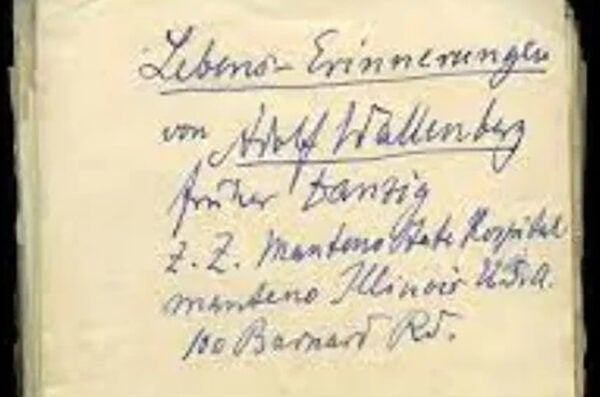 Lebens-Erinnerungen
von Adolf Wallenberg
früher Danzig
z. Z. Manteno State Hospital
Manteno Illinois U.S.A.
100 Barnard Rd.